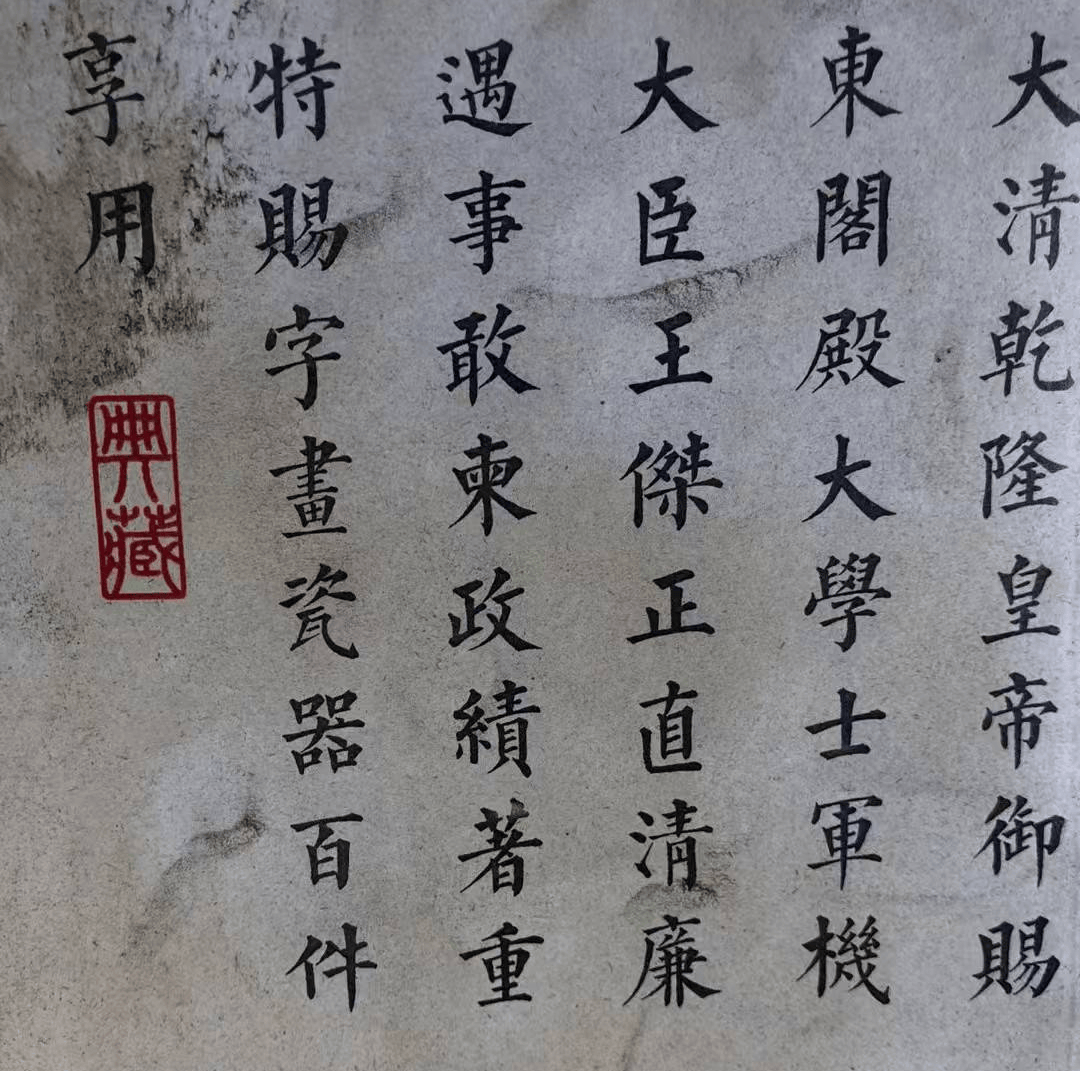 大清乾隆皇帝御賜
東閣殿大學士軍機
大臣王傑正直清廉
遇事敢柬政績著重
特賜字畫瓷器百件
享用
典藏